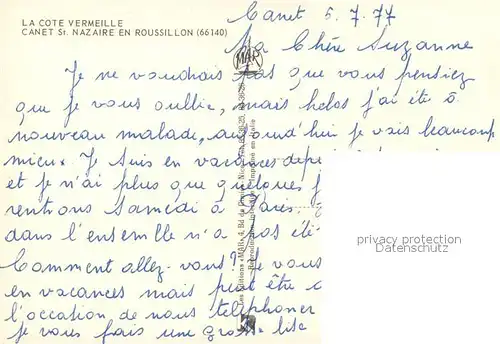 LA COTE VERMEILLE
CANET St. NAZAIRE EN ROUSSILLON (66140)
Canet 5.7.77
Ma Chère Suzanne
Je ne voudrais pas que vous pensiez
que je vous oublie, mais helos j'ai été à
nouveau malade, aujourd'hui je vais beaucoup
mieux. Je suis en vacances depu
et je n'ai plus que quelques j
rentrons samedi à Paris.
dans l'ensemble n'a pas été
Comment allez-vous? Je vous
en vacances mais peut être c
l'occasion de nous telephoner
je vous fais une grosse bise
MAR
Les Editions «MAR»
privacy protection
Datenschutz